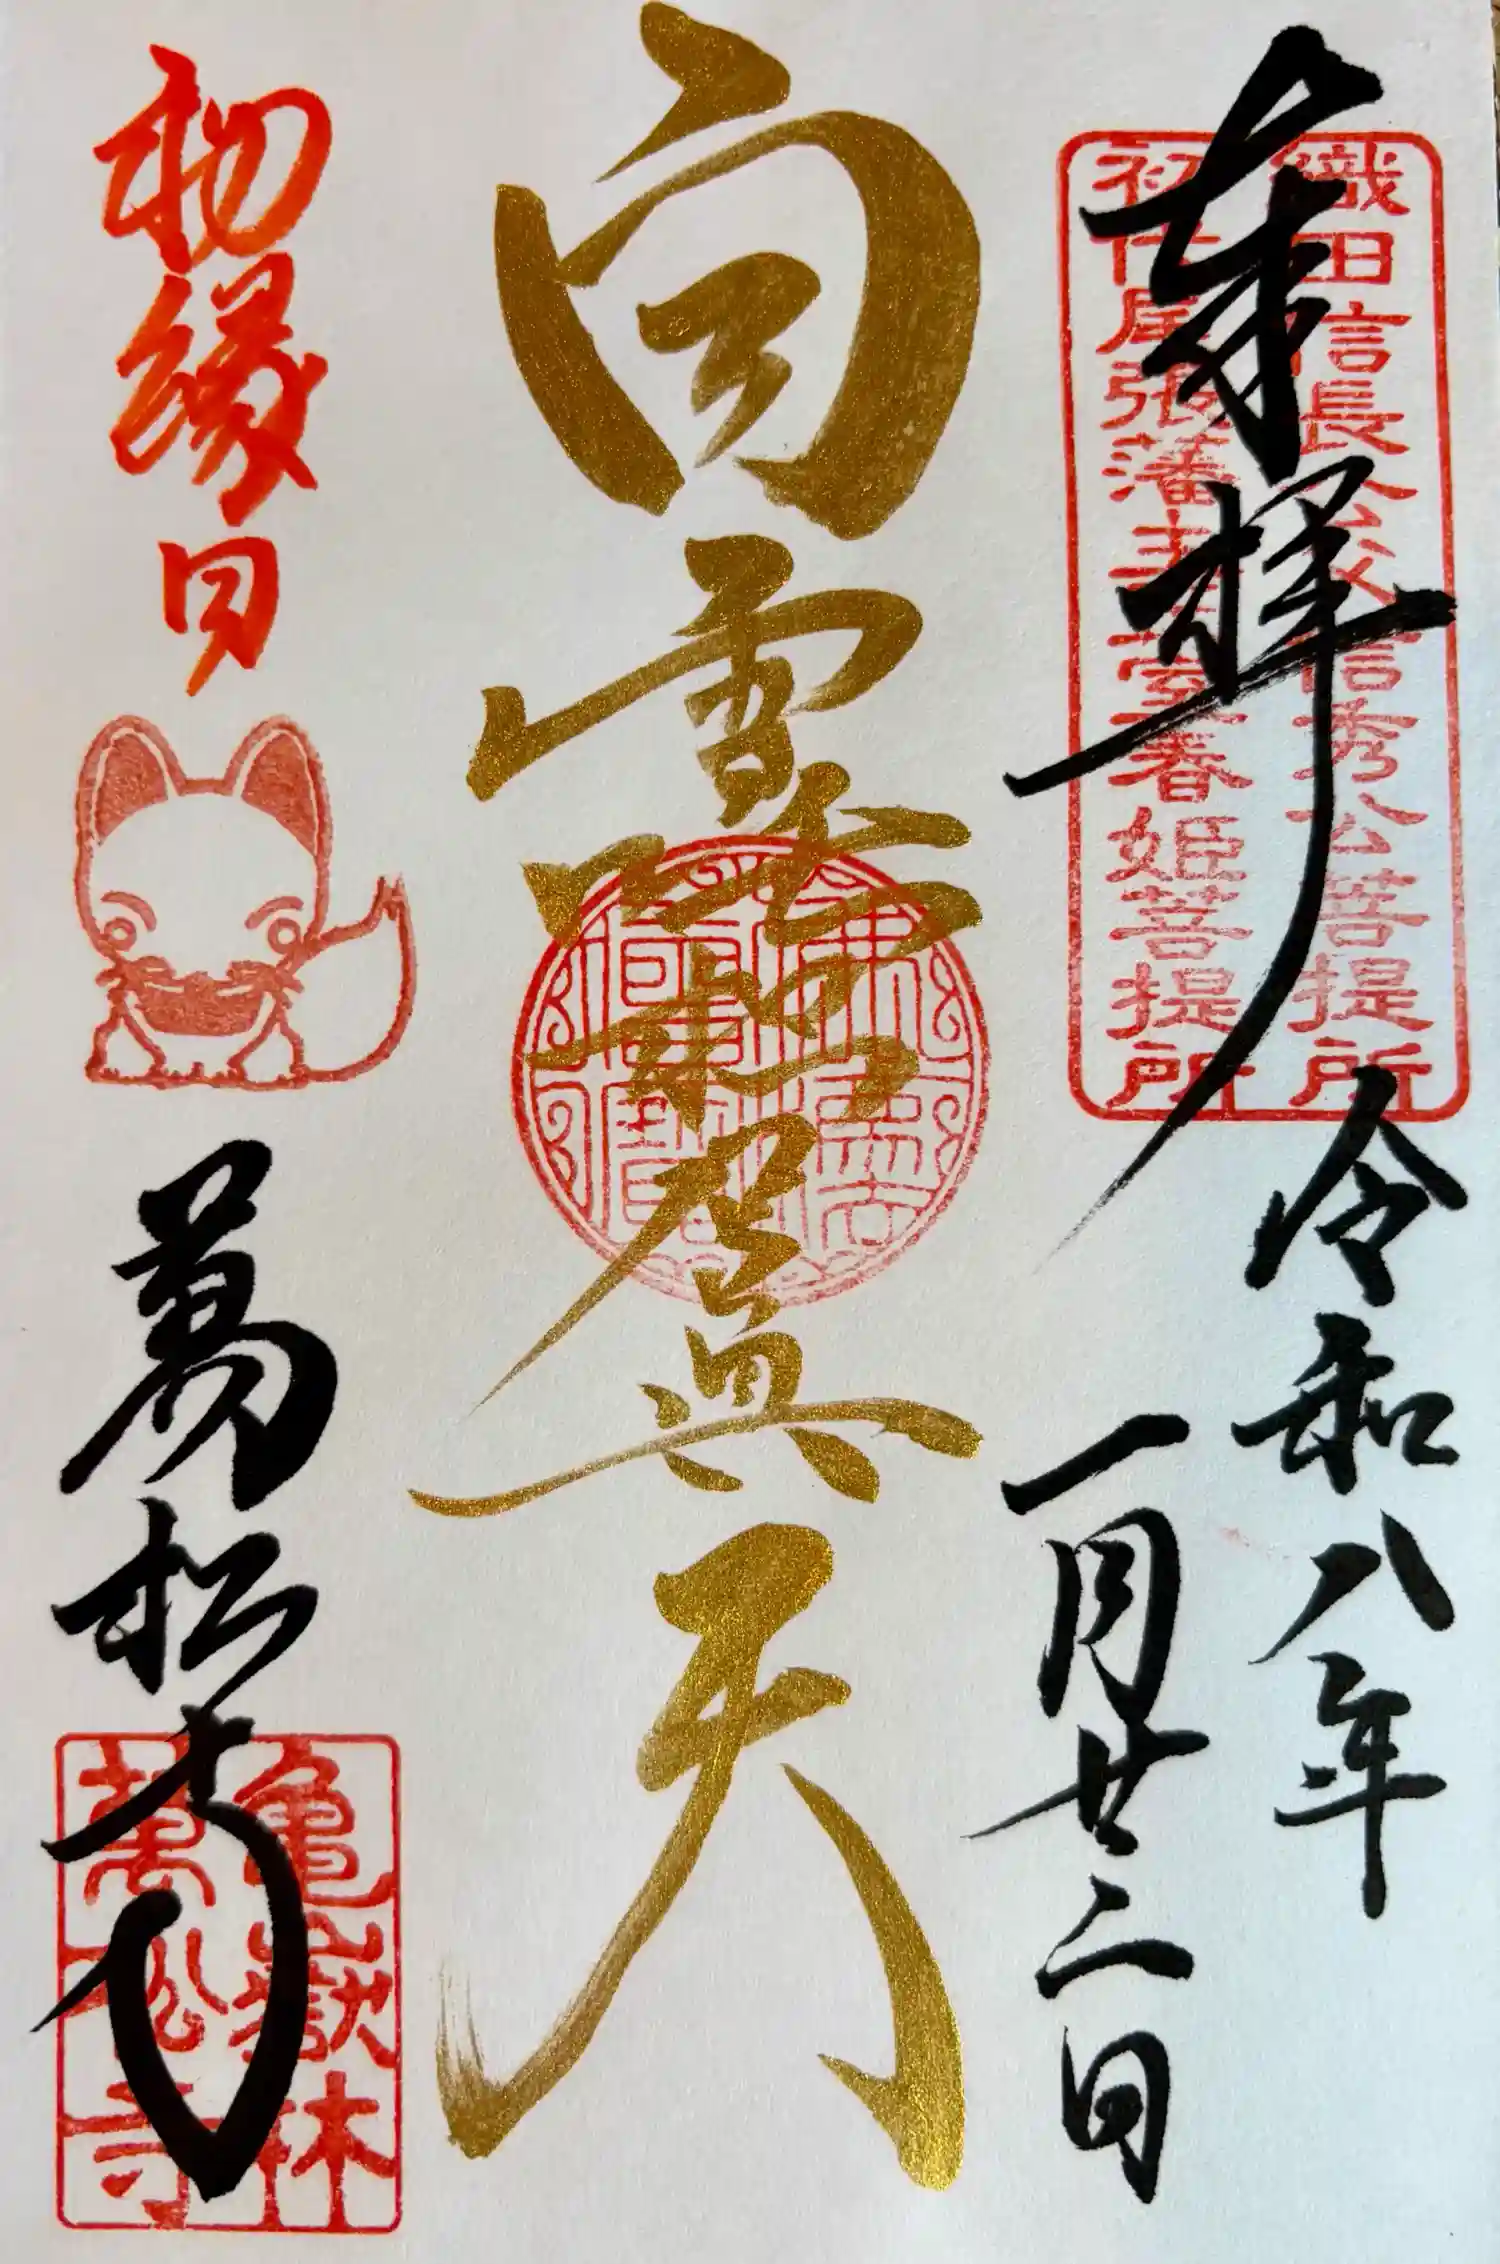 奉拝
織田信長公父信秀公菩提所
初代尾張藩主正室春姫菩提所
令和八年
一月廿二日
白雪吒枳尼眞天
初縁日
萬松寺
亀嶽林
萬松寺